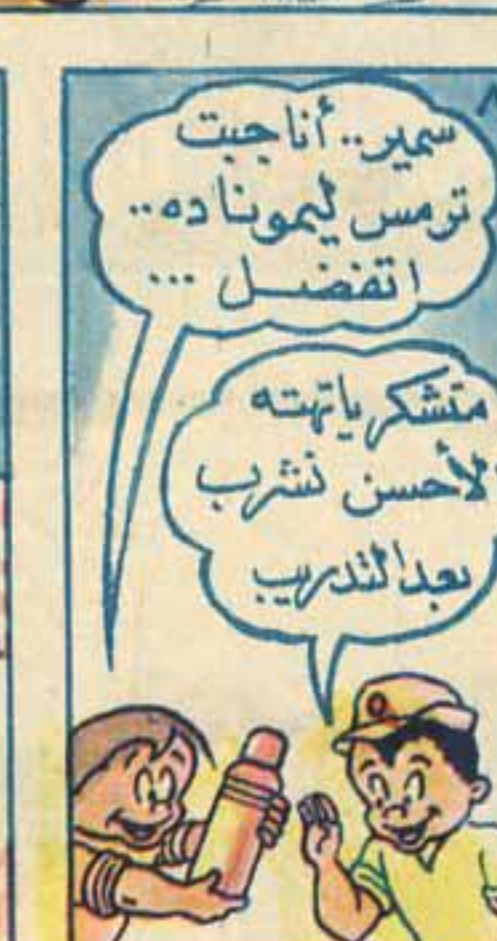 سمير.. أنا جبت
ترمس ليموناده..
اتفضل ...
متشكر ياتهته
لأحسن نشرب
بعد التدريب